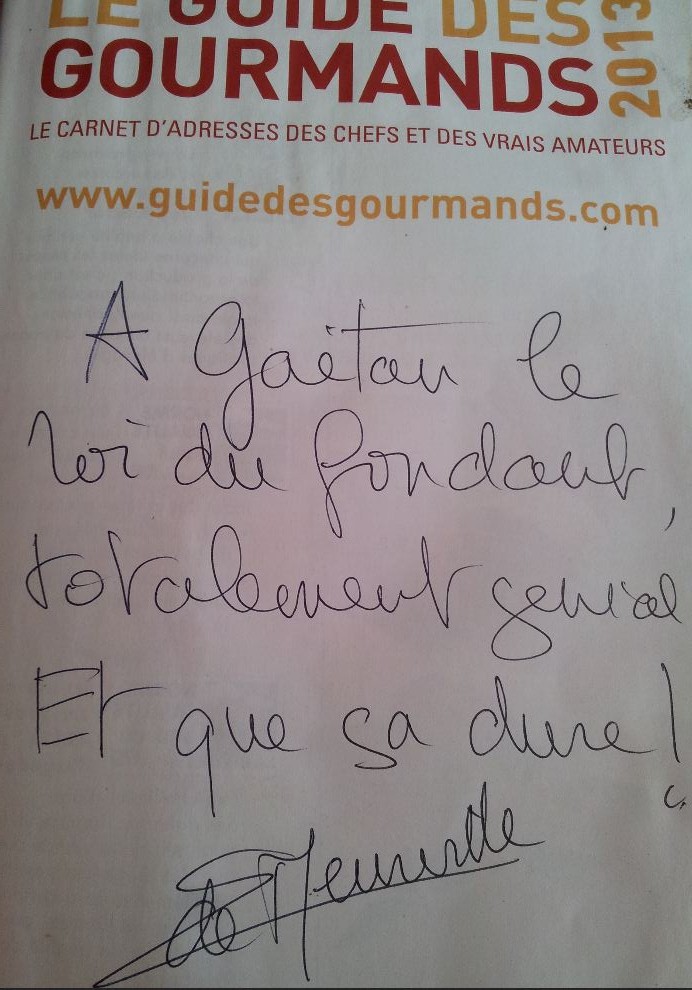 LE GUIDE DES
GOURMANDS 2013
LE CARNET D'ADRESSES DES CHEFS ET DES VRAIS AMATEURS
www.guidedesgourmands.com
A Gaëtan le
roi du fondant,
totalement genial
Et que sa dure !
de